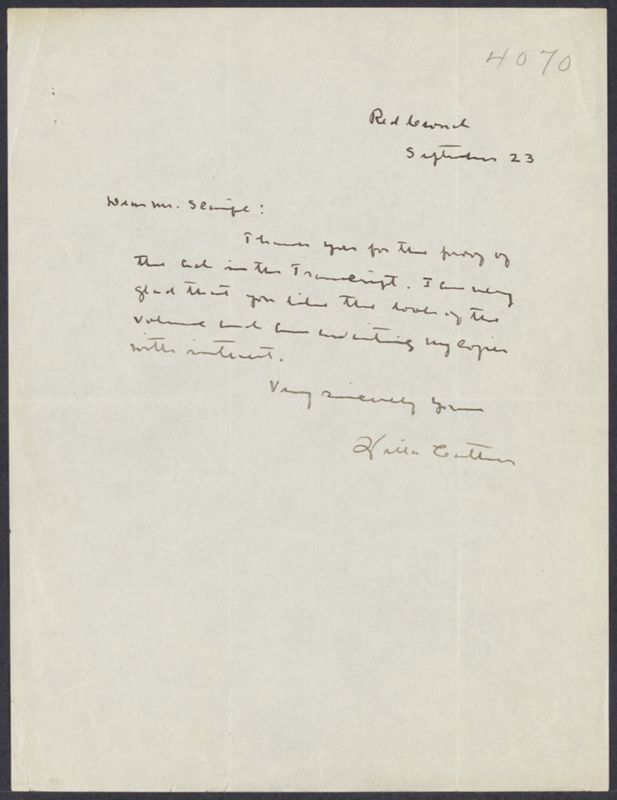 4070
Red Cloud
September 23
Dear Mr. Scaife:
Thank you for the proof of
the ad in the Transcript. I am very
glad that you like the look of the
volume and am awaiting my copies
with interest.
Very sincerely yours
Willa Cather